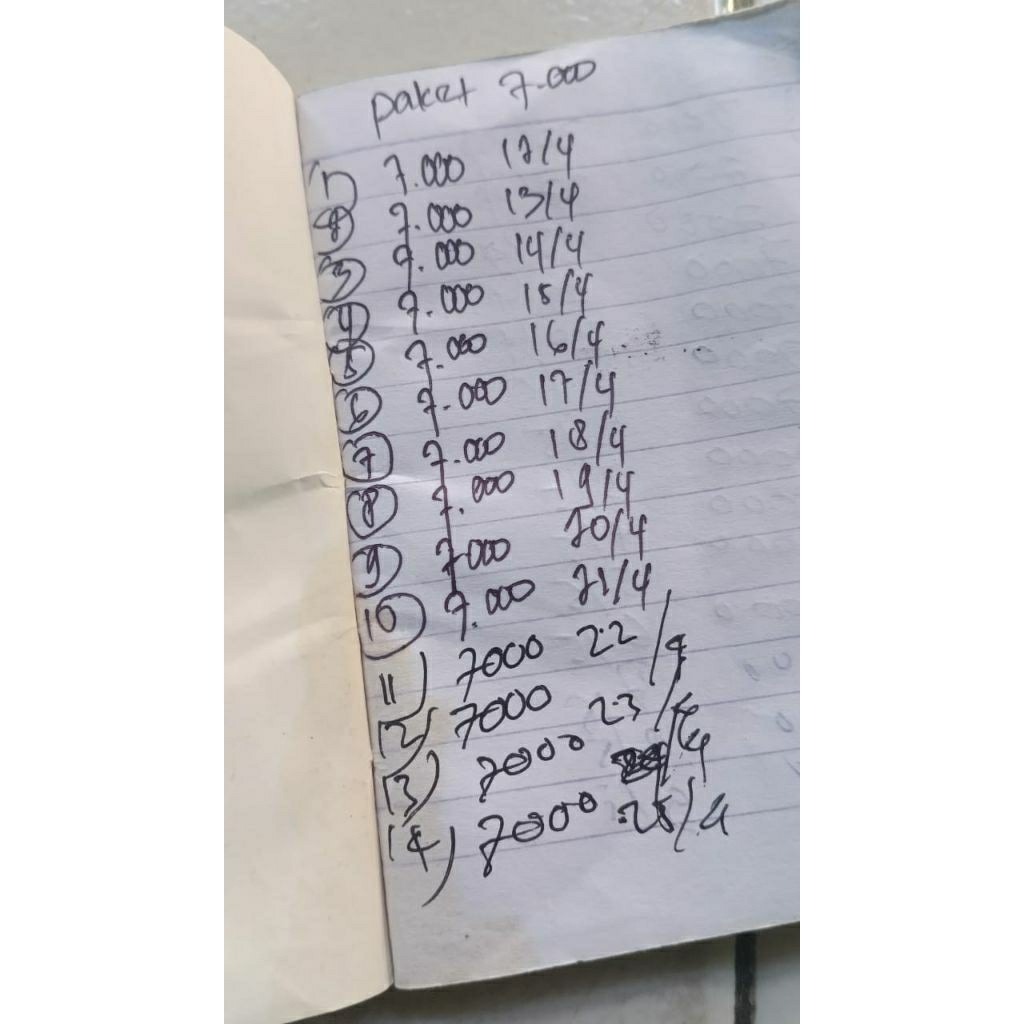 paket 7.000
1) 7.000 12/4
2 7.000 13/4
3 7.000 14/4
4 7.000 15/4
5 7.000 16/4
6 7.000 17/4
7 7.000 18/4
8 7.000 19/4
9 7000 20/4
10 7.000 21/4
11) 7000 22/4
12) 7000 23/4
13) 7000 /4
14) 7000 25/4